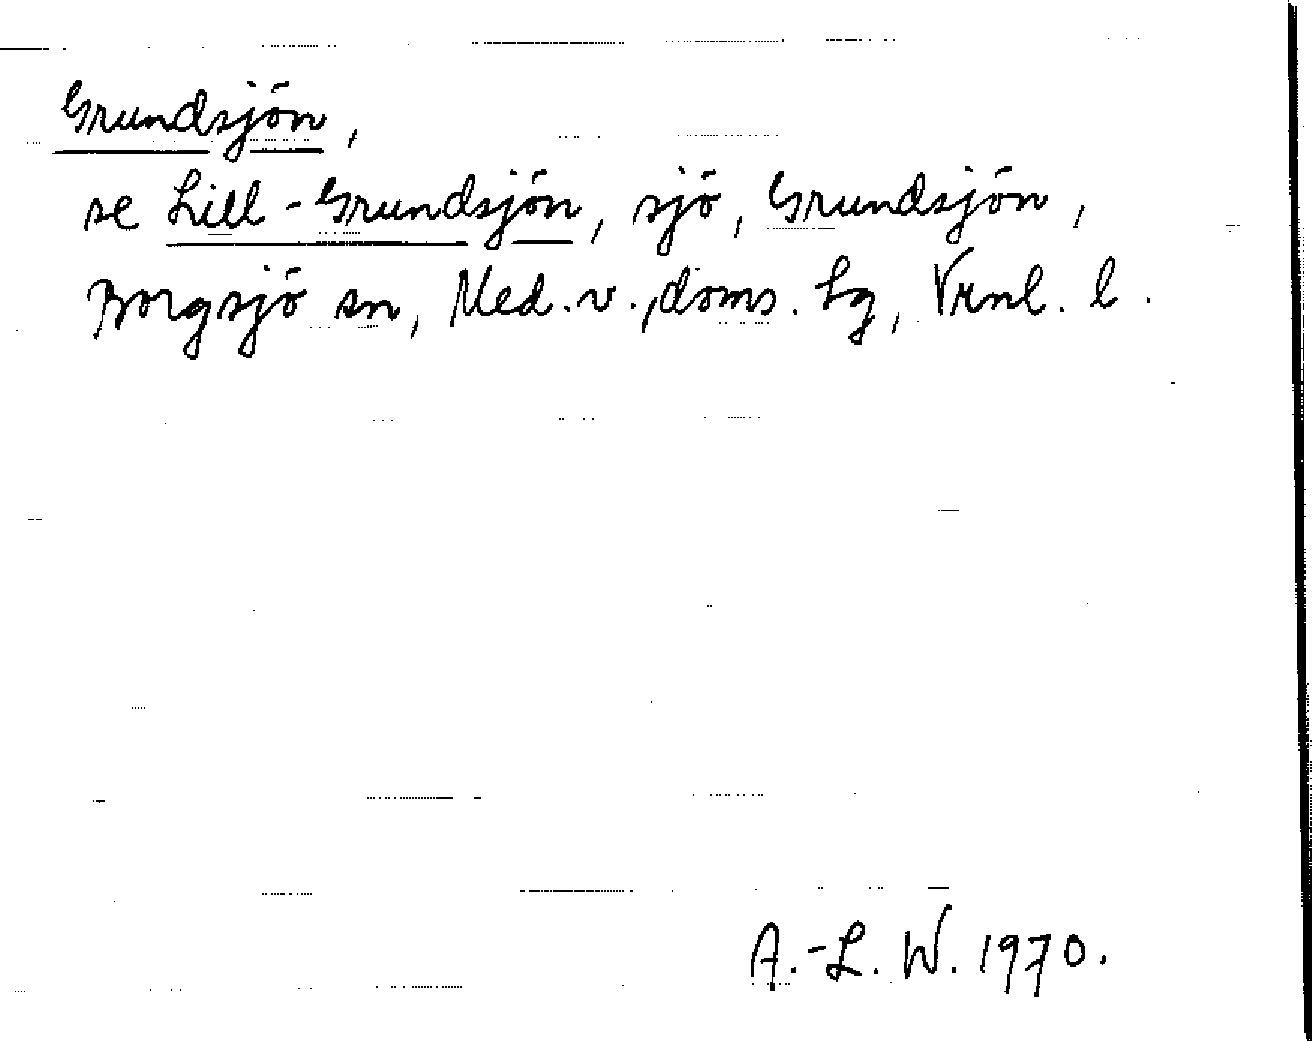 Grundsjön,
se Lill-Grundsjön, sjö, Grundsjön,
Borgsjö sn, Med. v., doms. hg, Vrnl. l.
A.-L. W. 1970.